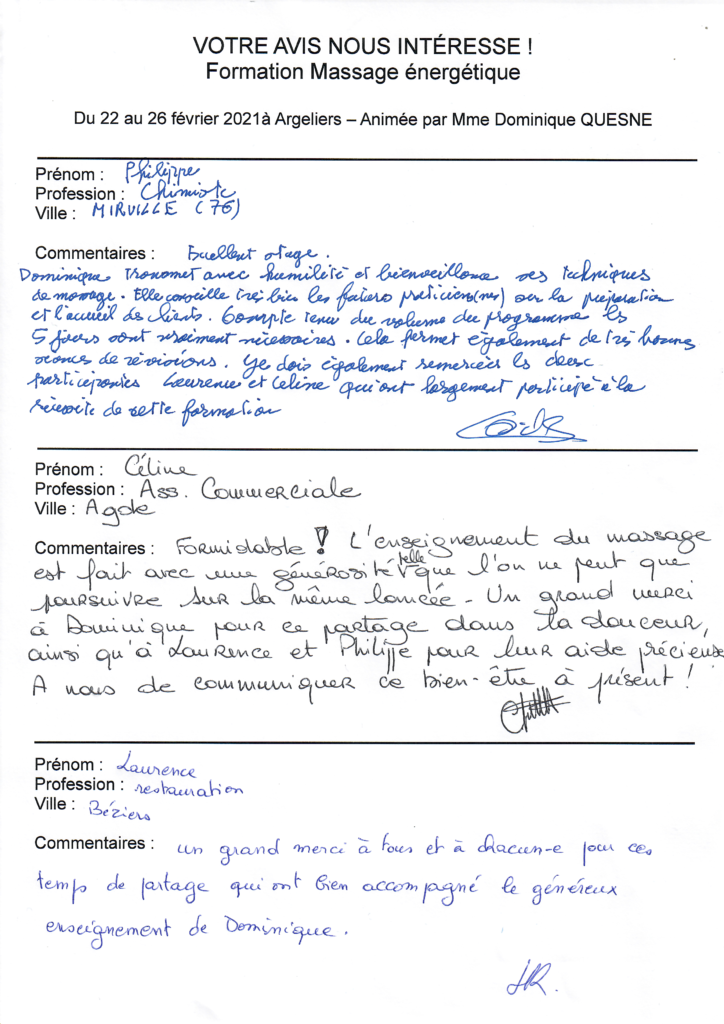 VOTRE AVIS NOUS INTÉRESSE !
Formation Massage énergétique
Du 22 au 26 février 2021à Argeliers – Animée par Mme Dominique QUESNE
Prénom : Philippe
Profession : Chimiste
Ville : MIRVILLE (76)
Commentaires : Excellent stage.
Dominique transmet avec humilité et bienveillance ses techniques
de massage. Elle conseille très bien les futurs praticiens(nes) sur la préparation
et l'accueil des clients. Compte tenu du volume du programme les
5 jours sont vraiment nécessaires. Cela permet également de très bonnes
séances de révisions. Je dois également remercier les deux
participantes Laurence et Céline qui ont largement participé à la
réussite de cette formation
Prénom : Céline
Profession : Ass. Commerciale
Ville : Agde
Commentaires : Formidable ! L'enseignement du massage
est fait avec une générosité telle que l'on ne peut que
poursuivre sur la même lancée - Un grand merci
à Dominique pour ce partage dans la douceur,
ainsi qu'à Laurence et Philippe pour leur aide précieuse
A nous de communiquer ce bien-être à présent !
Prénom : Laurence
Profession : restauration
Ville : Béziers
Commentaires : un grand merci à tous et à chacun-e pour ces
temps de partage qui ont bien accompagné le généreux
enseignement de Dominique.
LR.